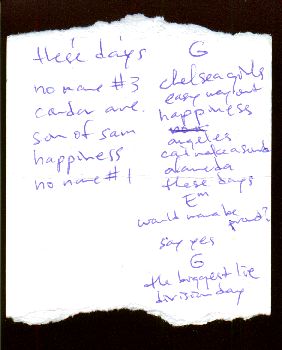 these days
no name #3
condor ave.
son of sam
happiness
no name #1
G
chelsea girls
easy way out
happiness
angeles
can't make a sound
alameda
these days
Em
would wanna be
proud?
say yes
G
the biggest lie
division day